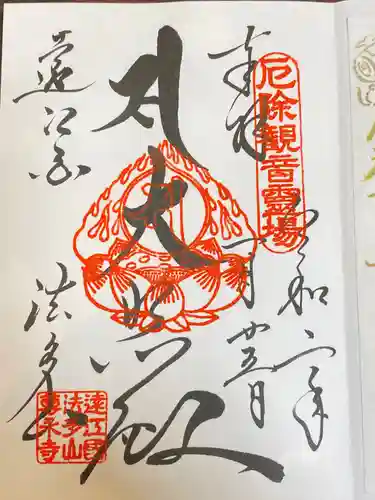 奉拝
厄除観音霊場
令和二年
月廿五日
大悲殿
遠江国
法多山
遠江国
法多山
尊永寺